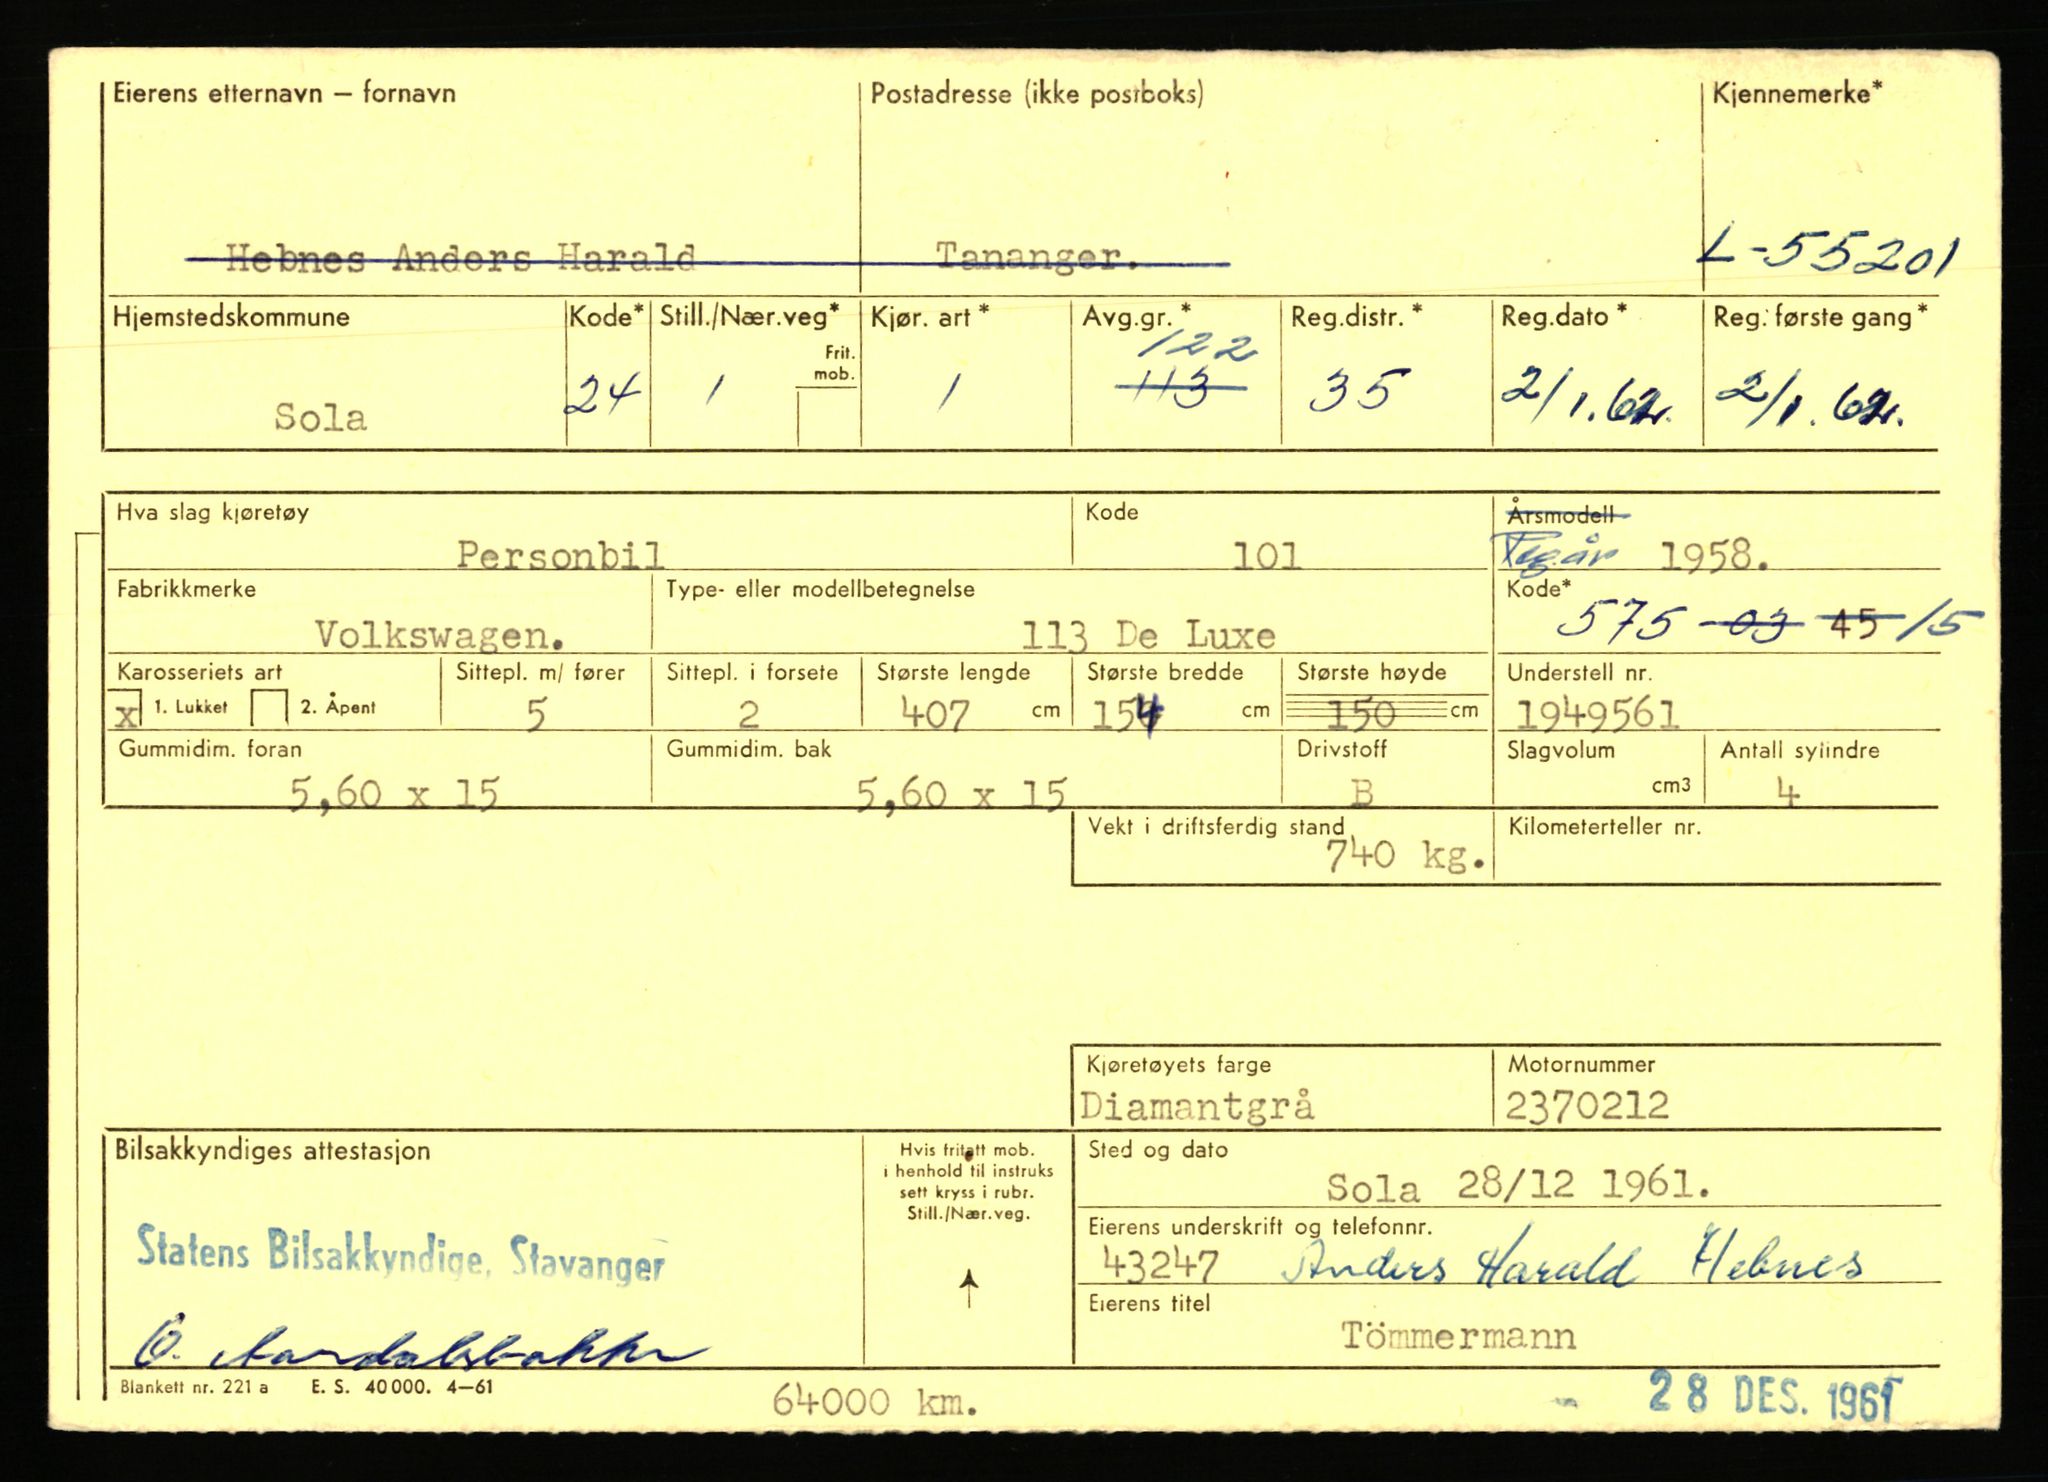 Eierens etternavn — fornavn Postadresse (ikke postboks) Kjennemerke*
Hebnes Anders Harald Tananger. L-55201
Hjemstedskommune Kode* Still./Nær.veg* Kjør. art* Avg.gr.* Reg.distr.* Reg.dato* Reg. første gang*
122
Frit.
mob.
Sola 24 1 1 113 35 2/1.62. 2/1.62.
Hva slag kjøretøy Kode Årsmodell
Personbil 101 Reg.år 1958.
Fabrikkmerke Type- eller modellbetegnelse Kode*
Volkswagen. 113 De Luxe 575 -03 45 15
Karosseriets art Sittepl. m/ fører Sittepl. i forsete Største lengde Største bredde Største høyde Understell nr.
x 1. Lukket 2. Åpent 5 2 407 cm 154 cm 150 cm 1949561
Gummidim. foran Gummidim. bak Drivstoff Slagvolum Antall sylindre
5,60 x 15 5,60 x 15 B cm3 4
Vekt i driftsferdig stand Kilometerteller nr.
740 kg.
Kjøretøyets farge Motornummer
Diamantgrå 2370212
Bilsakkyndiges attestasjon Hvis fritatt mob. Sted og dato
i henhold til instruks
sett kryss i rubr.
Still./Nær.veg.
Sola 28/12 1961.
Eierens underskrift og telefonnr.
Statens Bilsakkyndige, Stavanger 43247 Anders Harald Hebnes
Eierens titel
Tömmermann
O.
Blankett nr. 221 a E. S. 40 000. 4—61 64000 km. 28 DES. 1961